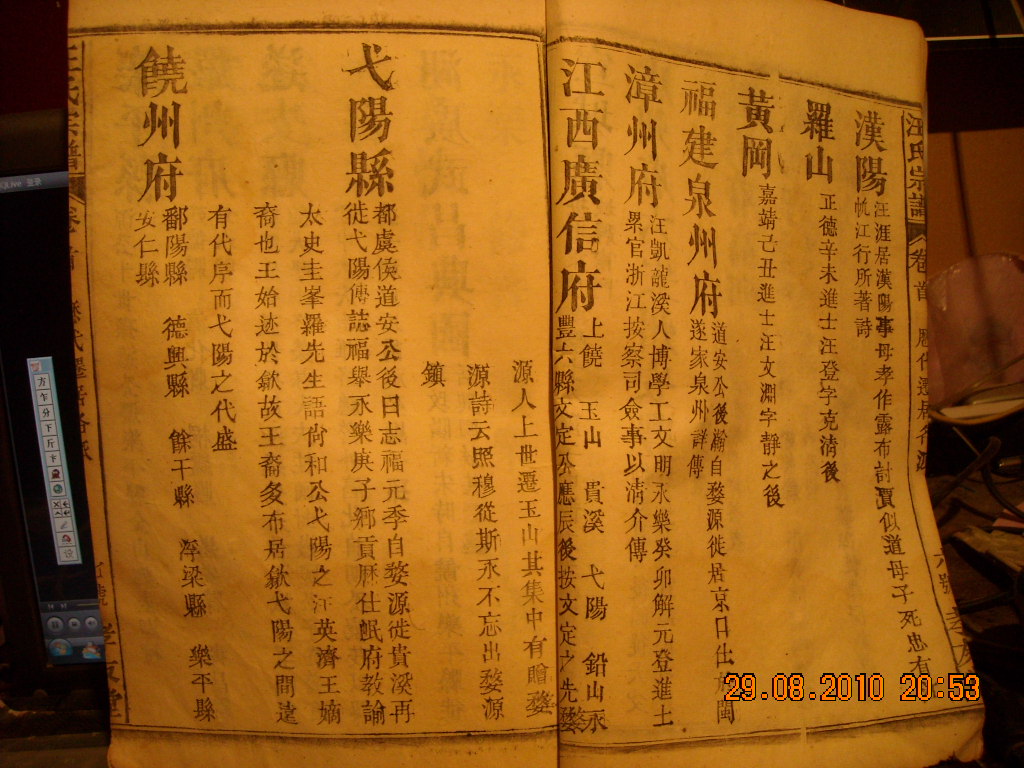 汪氏宗譜 卷首 歷代遷居各派 六號
漢陽 汪涯居漢陽事母孝作露布討賈似道母子死忠有
帆江行所著詩
羅山 正德辛未進士汪登字克清後
黃岡 嘉靖己丑進士汪文淵字靜之後
福建泉州府 道安公後瀚自婺源徙居京口仕於閩
遂家泉州詳傳
漳州府 汪凱龍溪人博學工文明永樂癸卯解元登進士
累官浙江按察司僉事以清介傳
江西廣信府 上饒 玉山 貴溪 弋陽 鉛山 永
豐六縣文定公應辰後按文定之先婺
源人上世遷玉山其集中有贈婺
源詩云照穆從斯永不忘出婺源
鎮
弋陽縣 都虞侯道安公後曰志福元季自婺源徙貴溪再
徙弋陽傳誌福舉永樂庚子鄉貢歷仕岷府教諭
太史圭峯羅先生語尙和公弋陽之汪英濟王嫡
裔也王始迹於歙故王裔多布居歙弋陽之間遠
有代序而弋陽之代盛
饒州府 鄱陽縣 德興縣 餘干縣 浮梁縣 樂平縣
安仁縣
29.08.2010 20:53